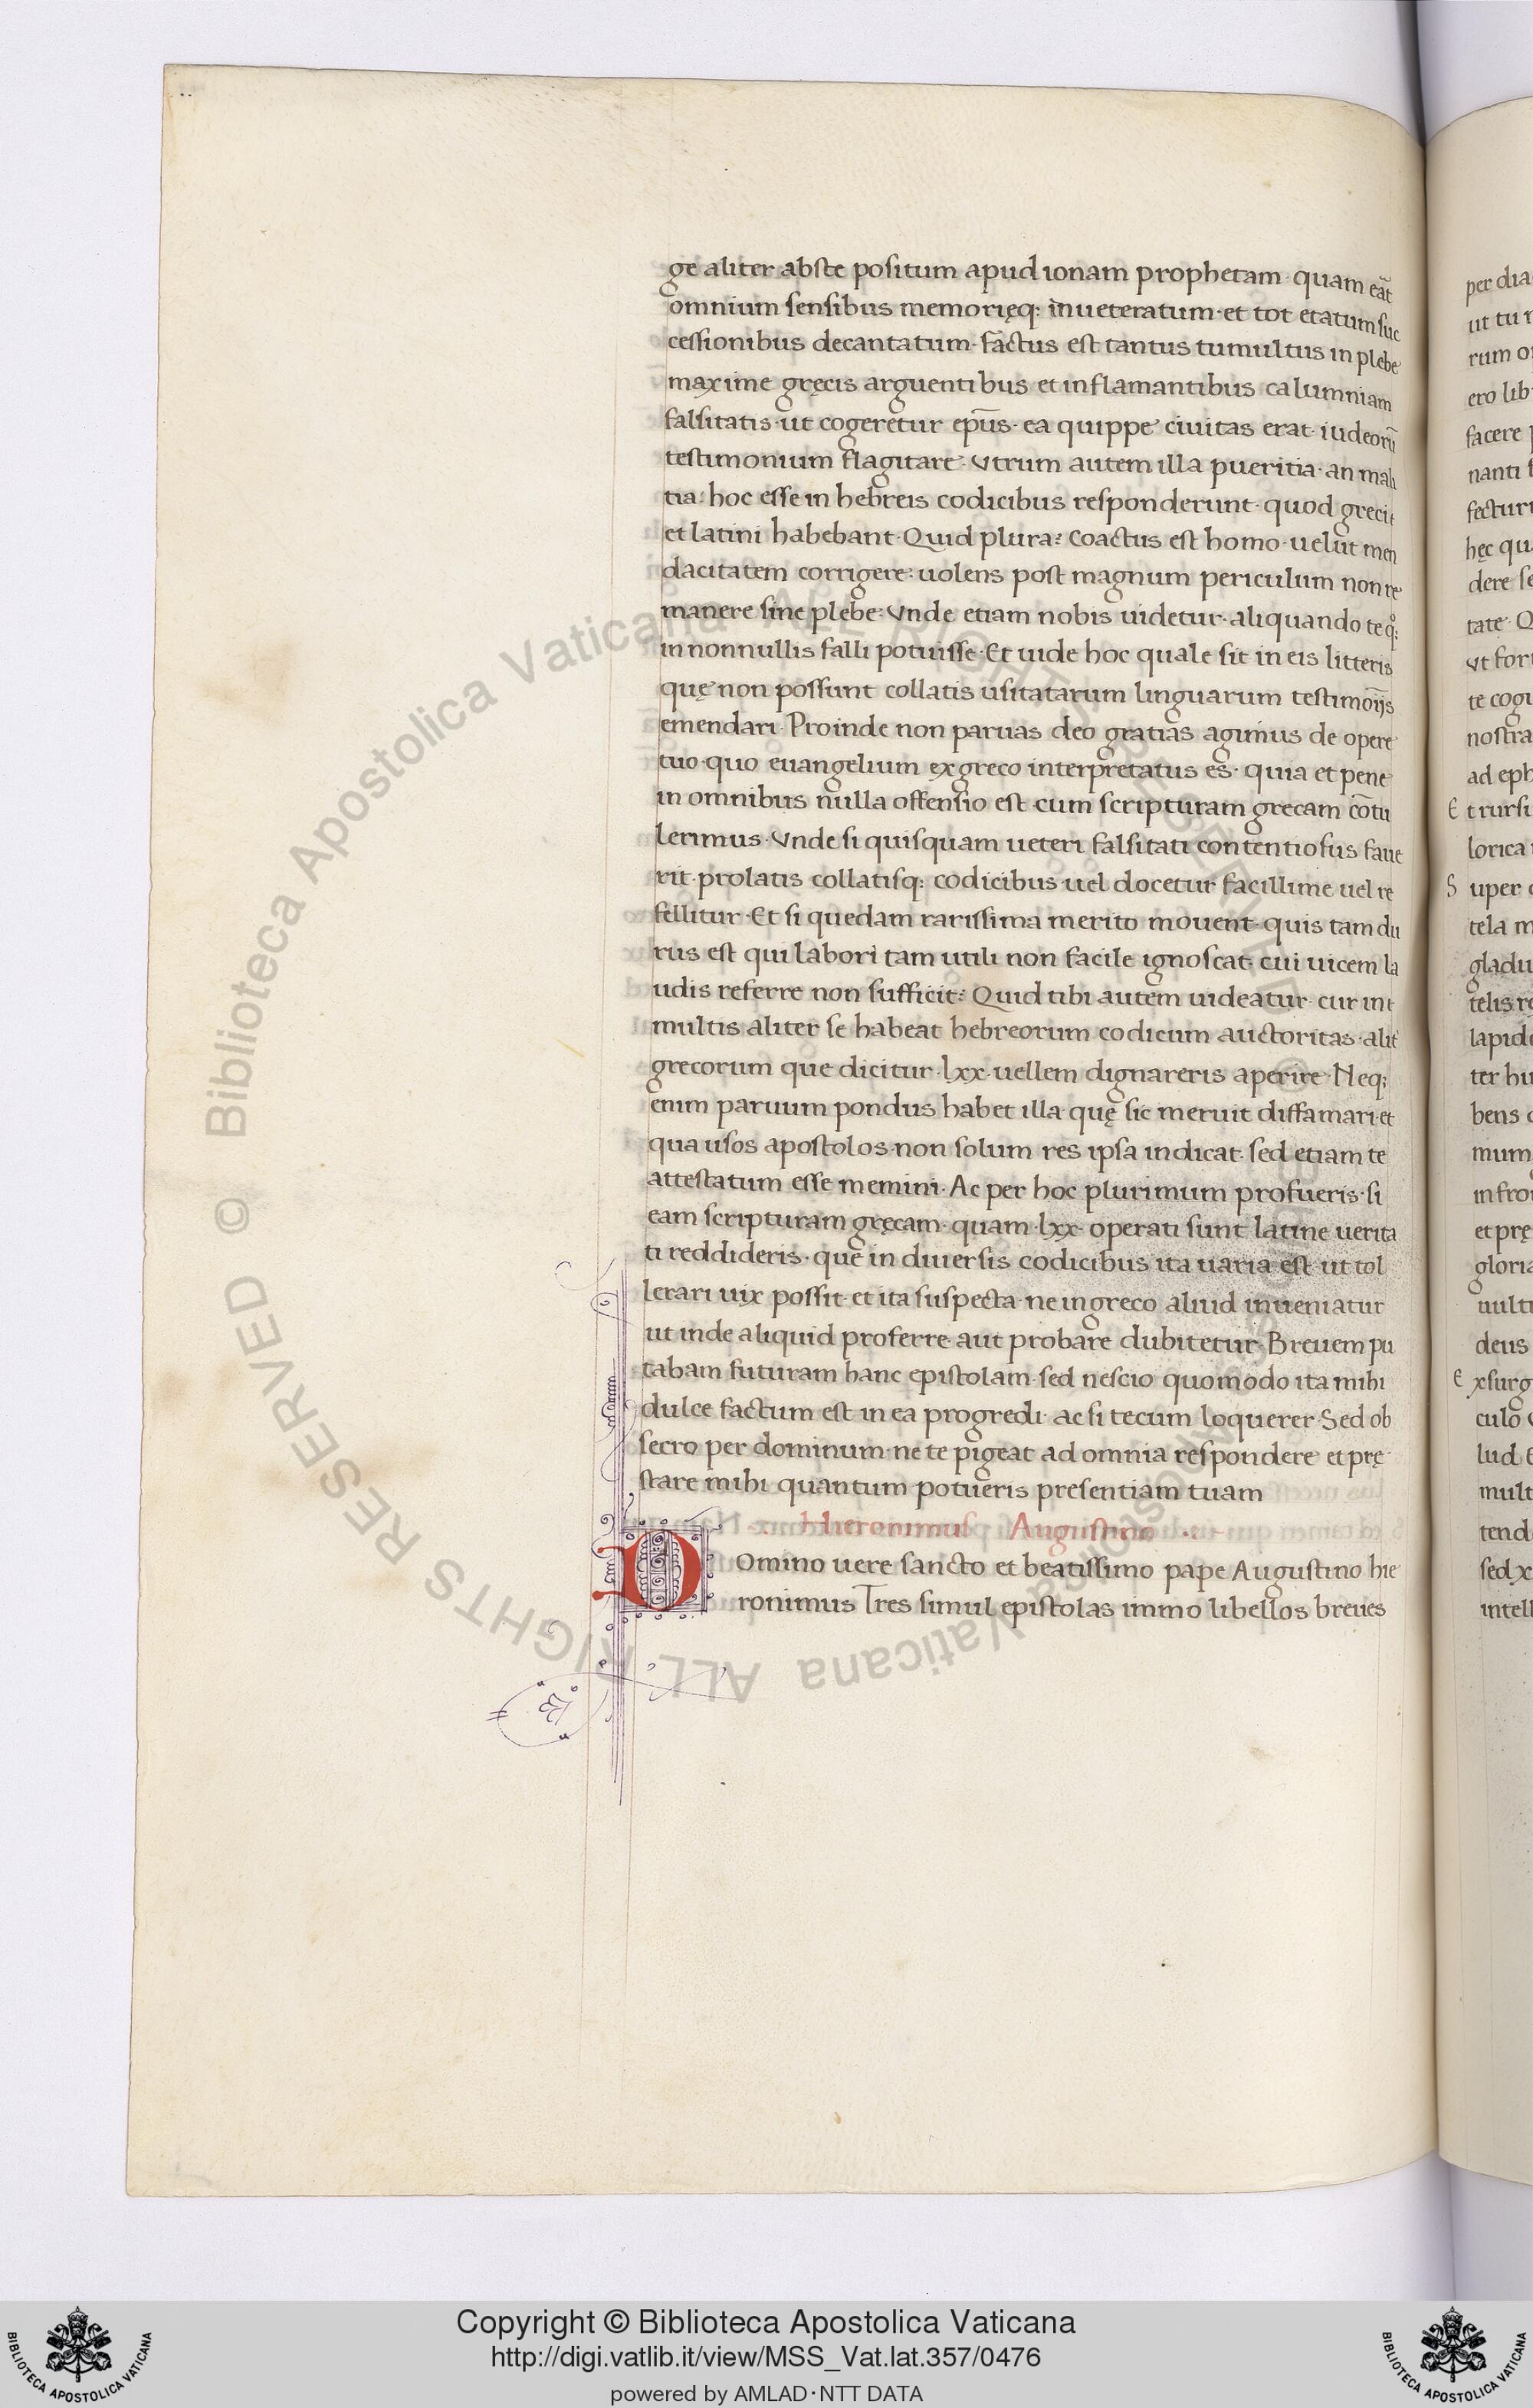 ge aliter abste positum apud ionam prophetam· quam eāt
omnium sensibus memorięq: inueteratum· et tot etatum suc
cessionibus decantatum· factus est tantus tumultus in plebe
maxime gręcis arguentibus et inflamantibus calumniam
falsitatis· ut cogeretur ep̄us· ea quippe ciuitas erat· iudeorū
testimonium flagitare· Vtrum autem illa pueritia· an mali
tia: hoc esse in hebreis codicibus responderunt· quod greci
et latini habebant· Quid plura? Coactus est homo· uelut men
dacitatem corrigere: uolens post magnum periculum non re
manere sine plebe: Vnde etiam nobis uidetur· aliquando te q°:
in nonnullis falli potuisse· Et uide hoc quale sit in eis litteris
quę non possunt collatis usitatarum linguarum testimōijs
emendari· Proinde non paruas deo gratias agimus de opere
tuo· quo euangelium ex greco interpretatus es· quia et pene
in omnibus nulla offensio est· cum scripturam grecam cōtu
lerimus· Vnde si quisquam ueteri falsitati contentiosus faue
rit· prolatis collatisq: codicibus· uel docetur facillime uel re
fellitur· Et si quedam rarissima merito mouent· quis tam du
rus est qui labori tam utili non facile ignoscat· cui uicem la
udis referre non sufficit? Quid tibi autem uideatur· cur in
multis aliter se habeat hebreorum codicum auctoritas· alit̄
grecorum que dicitur· lxx· uellem dignareris aperire· Neq;
enim paruum pondus habet illa quę sic meruit diffamari· et
qua usos apostolos· non solum res ipsa indicat· sed etiam te
attestatum esse memini· Ac per hoc plurimum profueris· si
eam scripturam gręcam· quam· lxx· operati sunt latine uerita
ti reddideris· que in diuersis codicibus ita uaria est ut tol
lerari uix possit· et ita suspecta· ne in greco aliud inueniatur
ut inde aliquid proferre aut probare dubitetur· Breuem pu
tabam futuram hanc epistolam· sed nescio quomodo ita mihi
dulce factum est in ea progredi· ac si tecum loquerer· Sed ob
secro per dominum· ne te pigeat ad omnia respondere et prę
stare mihi quantum potueris presentiam tuam
Hieronimus Augustino
Domino uere sancto et beatissimo pape Augustino hie
ronimus Tres simul epistolas immo libellos breues
per dia
ut tu
rum
ero lib
facere
nanti
fectur
hęc qu
dere se
tate· Q
Vt for
te cog
nostra
ad eph
Et rursi
lorica
Super
tela m
gladu
telis
lapid
ter hu
bens
mum
in fro
et prę
gloria
uult
deus
Exsurg
culo
lud
mult
tend
sed
intell
© Biblioteca Apostolica Vaticana ALL RIGHTS RESERVED
Copyright © Biblioteca Apostolica Vaticana
http://digi.vatlib.it/view/MSS_Vat.lat.357/0476
powered by AMLAD·NTT DATA
BIBLIOTECA APOSTOLICA VATICANA
BIBLIOTECA APOSTOLICA VATICANA